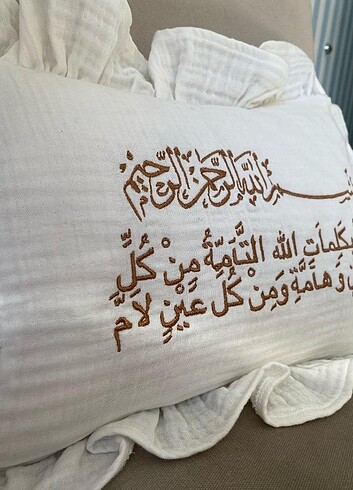 بسم الله الرحمن الرحيم
بكلماتِ الله التَّامَّةِ مِنْ كُلِّ
وَهَامَّةٍ وَمِنْ كُلِّ عَيْنٍ لَامَّ